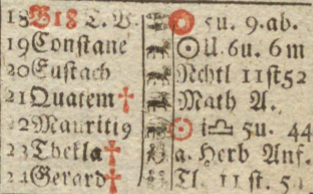 18 B 18 T. V. 5u. 9. ab.
19 Constanc ☉ U. 6u. 6m
20 Eustach Nchtl 11st 52
21 Quatem† Math A.
22 Mauriti9 i♎ 5u. 44
23 Thekla† a. Herb Anf.
24 Gerard† Tl. 11 st. 5